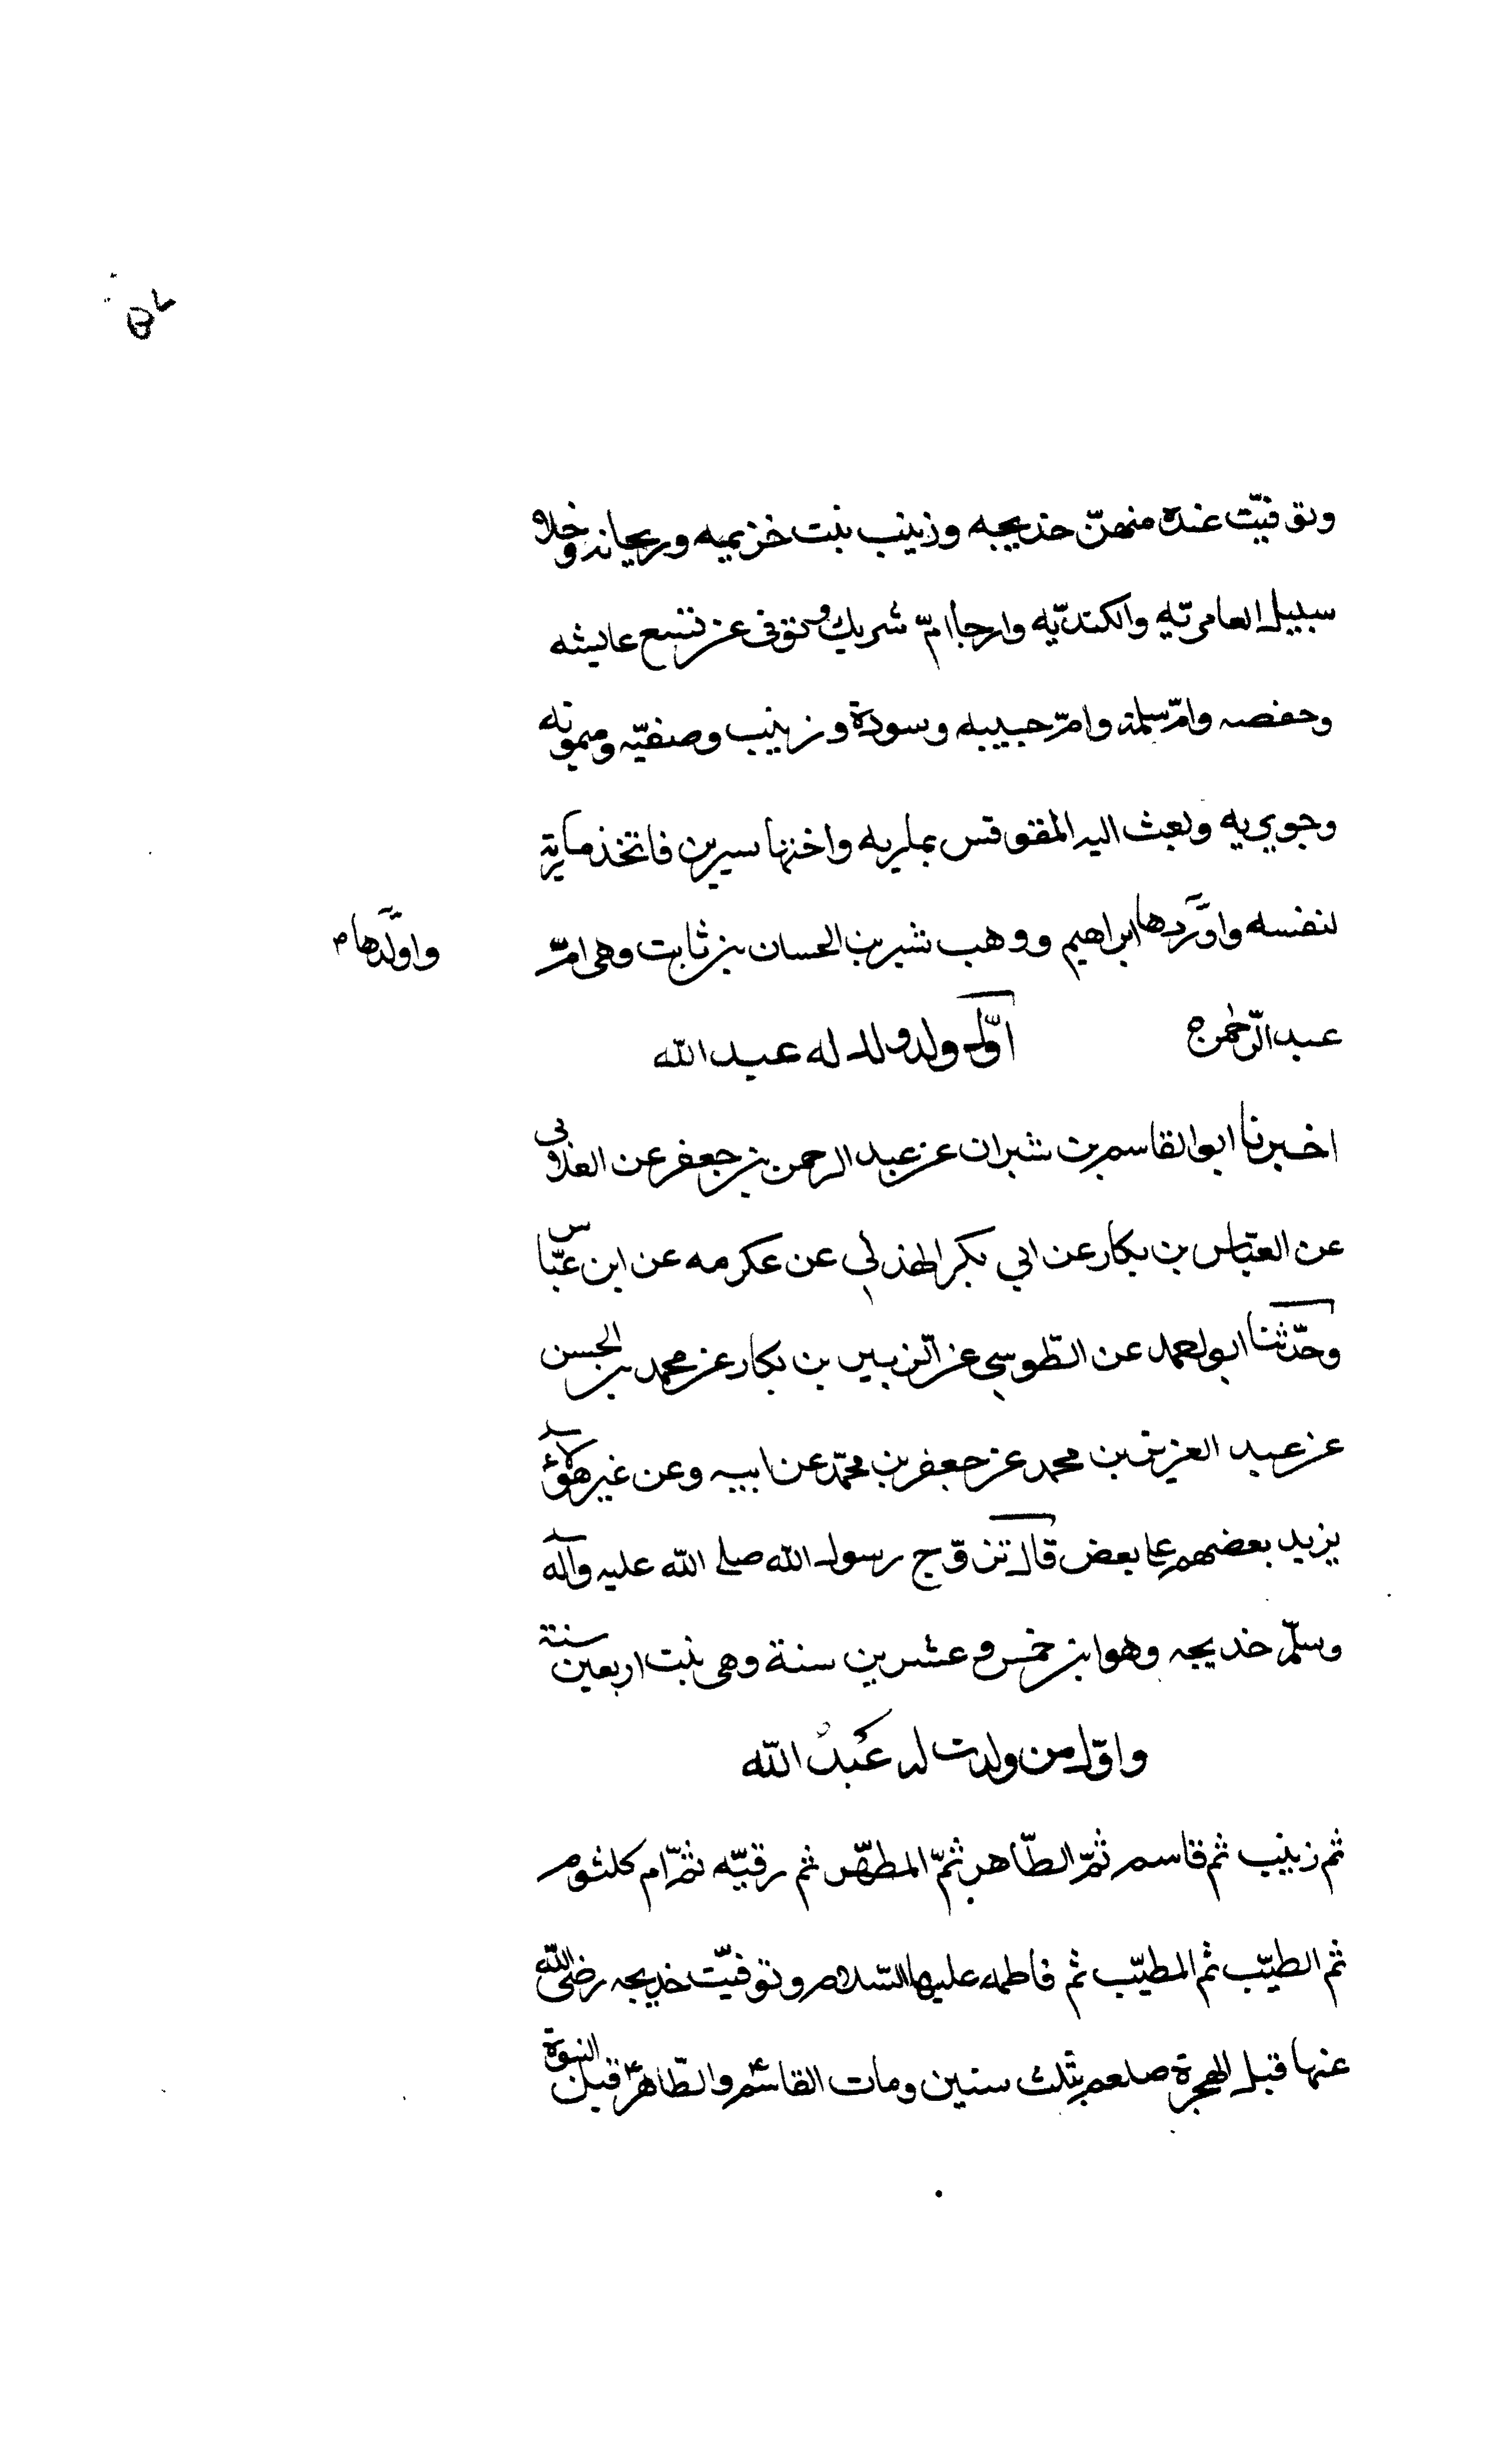 وتوفيّت عنده منهنّ خديجه وزينب بنت خزيمه وريحانه وخلا
سبيل العامريّه والكنديّه وارجا امّ شريك وتوفى عن تسع عايشه
وحفصه وامّ سلمة وامّ حبيبه وسودة وزينب وصفيّه وميمونه
وجويريه وبعث اليه المقوقس بماريه واختها سيرين فاتخذ مارية
لنفسه واوّردها ابراهيم ووهب شيرين لحسان بن ثابت وهى امّ
واولَّدها م
عبد الرّحمن ه اوّل ولد ولد له عبد الله
اخبرنا ابو القاسم بن شبران عن عبد الرحمن بن جعفر عن الغلابى
عن العبّاس بن بكار عن ابي بكر الهذلي عن عكرمه عن ابن عبّاس
وحدّثنا ابو احمد عن الطّوسي عن الزبير بن بكار عن محمد بن الحسن
عن عبد العزيز بن محمد عن جعفر بن محمّد عن ابيه وعن غير هؤلآء
يزيد بعضهم على بعض قال تزوّج رسول الله صلى الله عليه وآله
وسلّم خديجه وهو ابن خمس وعشرين سنة وهى بنت اربعين سنة
واوّل من ولدت له عَبدُ الله
ثم زينب ثم قاسم ثمّ الطّاهر ثمّ المطهّر ثم رقيّه ثمّ ام كلثوم
ثم الطيّب ثم المطيّب ثم فاطمه عليها السّلام وتوفيّت خديجه رضى الله
عنها قبل الهجرة صلعم بثلث سنين ومات القاسم والطّاهر قبل النبوة